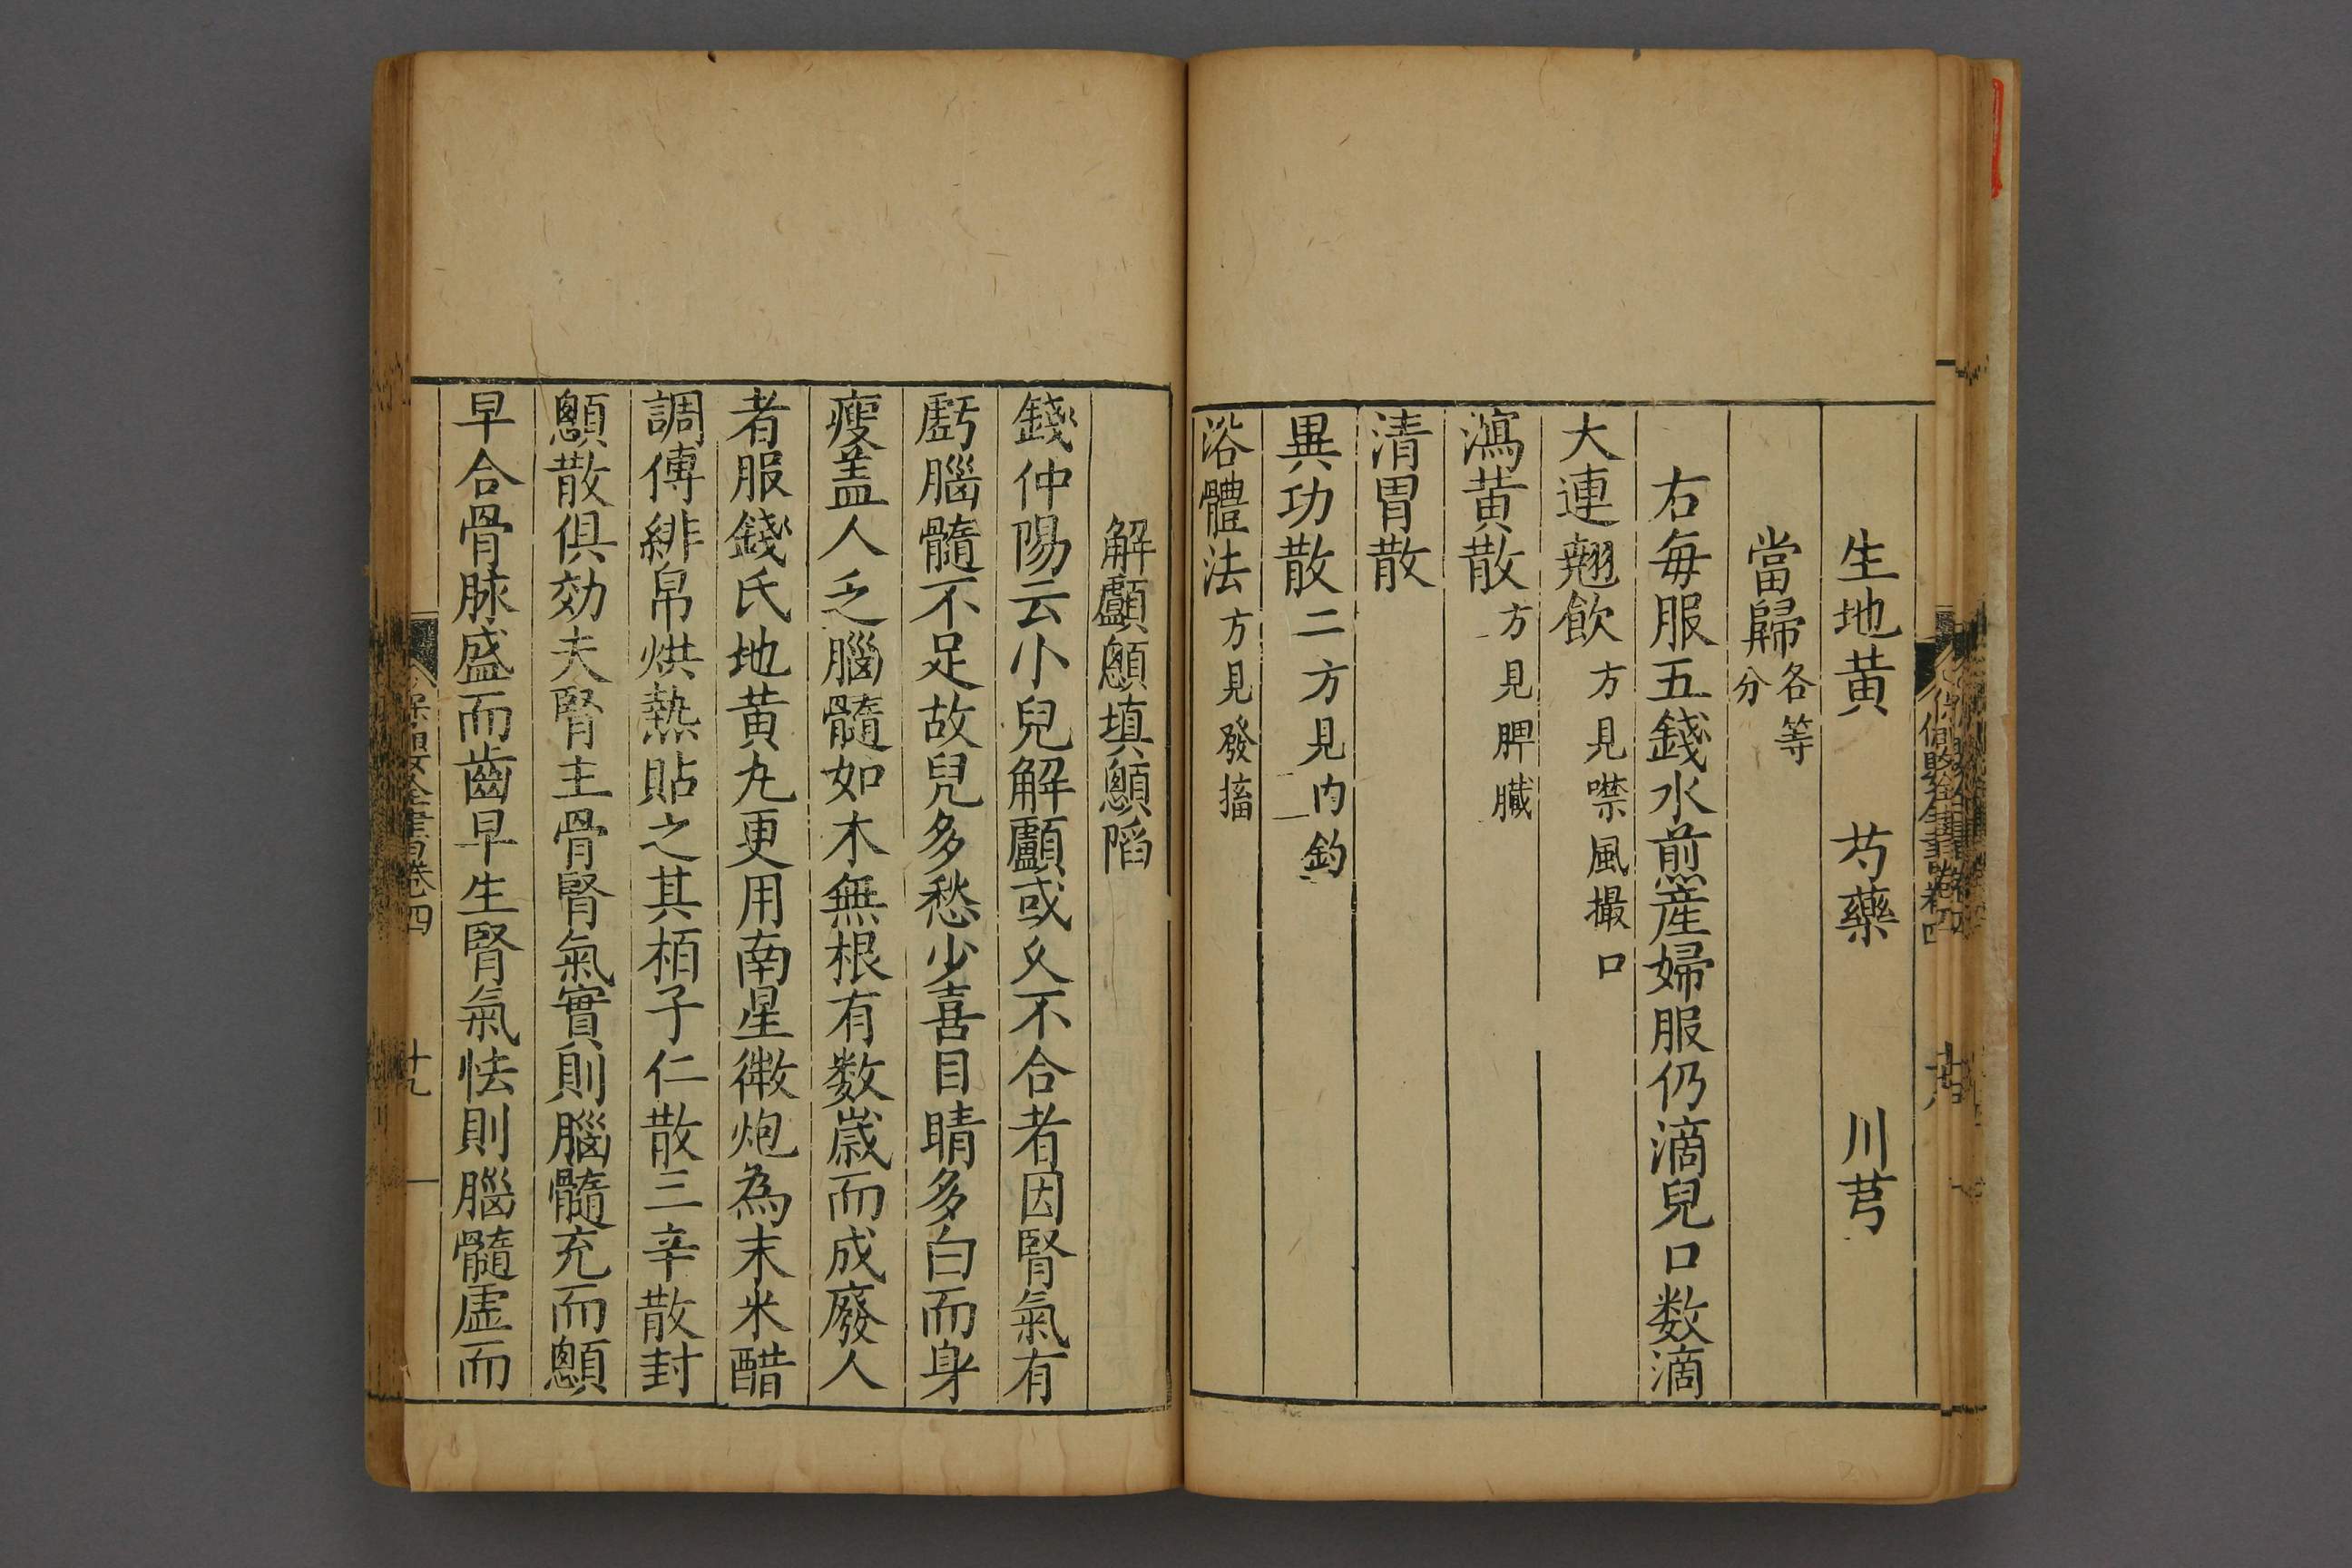 生地黄 芍藥 川芎
當歸各等分
右每服五錢水煎産婦服仍滴兒口数滴
大連翹飲方見噤風撮口
瀉黄散方見脾臟
清胃散
異功散二方見内釣
浴體法方見發搐
解顱顖填顖陷
錢仲陽云小兒解顱或乆不合者因腎氣有
虧腦髓不足故兒多愁少喜目睛多白而身
瘦盖人乏腦髓如木無根有数歲而成廢人
者服錢氏地黄丸更用南星微炮為末米醋
調傅緋帛烘熱貼之其栢子仁散三辛散封
顖散俱効夫腎主骨腎氣實則腦髓充而顖
早合骨脉盛而齒早生腎氣怯則腦髓虛而
保嬰全書卷四 十九